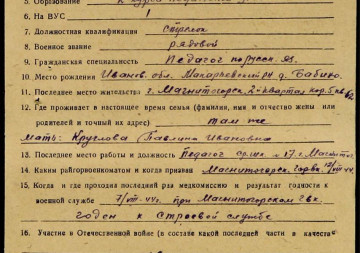 5. Образование
6. На ВУС 1
7. Должностная квалификация стрелок
8. Военное звание рядовой
9. Гражданская специальность Педагог по русск. яз.
10. Место рождения Иванов. обл. Макарьевский рн д. Бабино.
11. Последнее место жительства г. Магнитогорск, 2й квартал кор. 5 кв.
12. Где проживает в настоящее время семья (фамилия, имя и отчество жены или
родителей и точный их адрес) там же
Мать: Круглова Павлина Ивановна
13. Последнее место работы и должность Педагог ср. шк. 17 г. Магнитог
14. Каким райгорвоенкоматом и когда призван Магнитогорск. Горвк.
15. Когда и где проходил последний раз медкомиссию и результат годности к
военной службе 7/VIII-44г. при Магнитогорском гвк.
годен к строевой службе
16. Участие в Отечественной войне (в составе какой последней части и в качестве